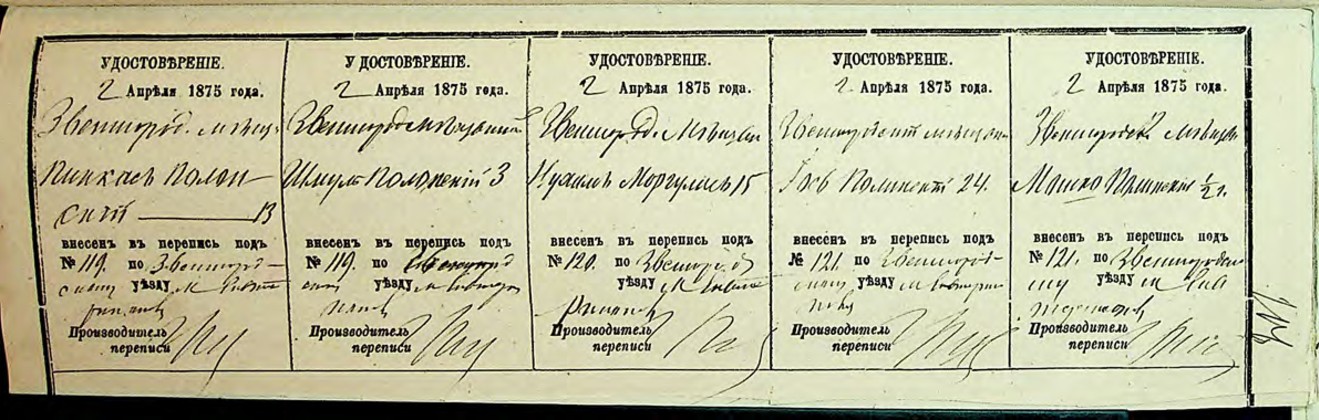 УДОСТОВѢРЕНІЕ.
2 Апрѣля 1875 года.
Звенигород. мѣщ.
Пинкасъ Полон
скій 13
внесенъ въ перепись подъ
№ 119. по Звенигород-
скому уѣзду м
Производитель
переписи
УДОСТОВѢРЕНІЕ.
2 Апрѣля 1875 года.
Шмуль Полонскій 3
внесенъ въ перепись подъ
№ 119. по Звенигород
уѣзду м
Производитель
переписи
УДОСТОВѢРЕНІЕ.
2 Апрѣля 1875 года.
Звенигород. Мѣщан
Моргулисъ 15
внесенъ въ перепись подъ
№ 120. по Звенигород
уѣзду м
Производитель
переписи
УДОСТОВѢРЕНІЕ.
2 Апрѣля 1875 года.
Звенигородскій мѣщанин
Полинскій 24.
внесенъ въ перепись подъ
№ 121. по Звенигород-
скому уѣзду м
Производитель
переписи
УДОСТОВѢРЕНІЕ.
2 Апрѣля 1875 года.
Звенигородск мѣщан
Мошко Полинскій ½ г.
внесенъ въ перепись подъ
№ 121. по Звенигородск
му уѣзду м
Производитель
переписи